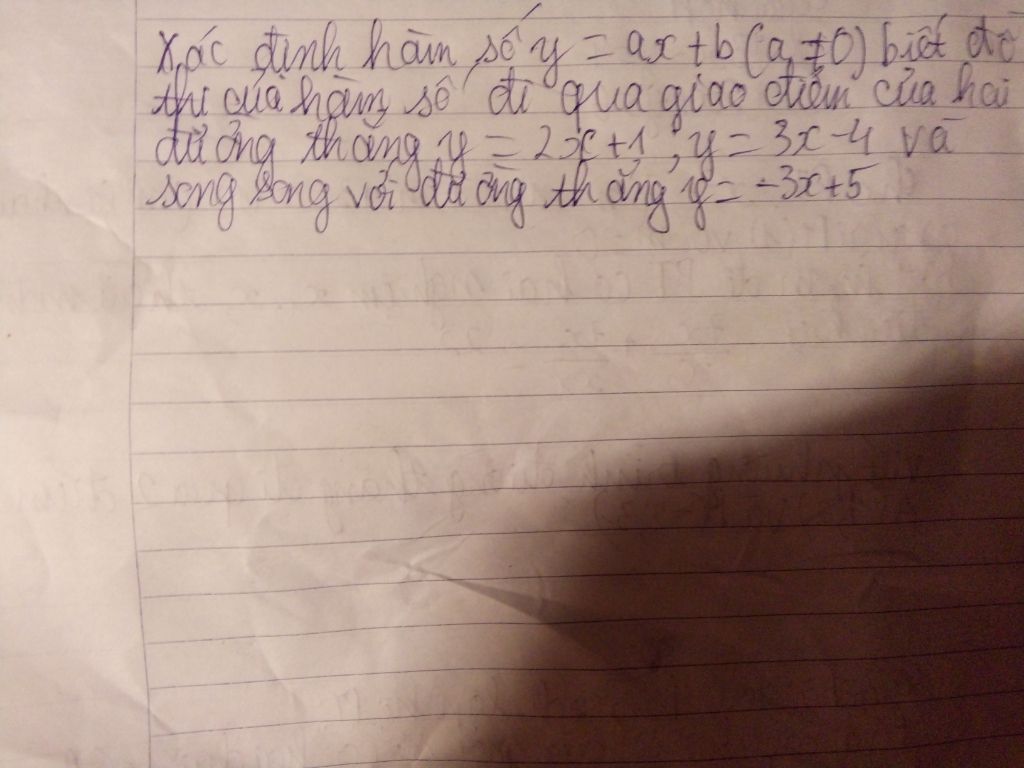 Xác định hàm số y = ax + b (a ≠ 0) biết đồ
thị của hàm số đi qua giao điểm của hai
đường thẳng y = 2x + 1 ; y = 3x - 4 và
song song với đường thẳng y = -3x + 5